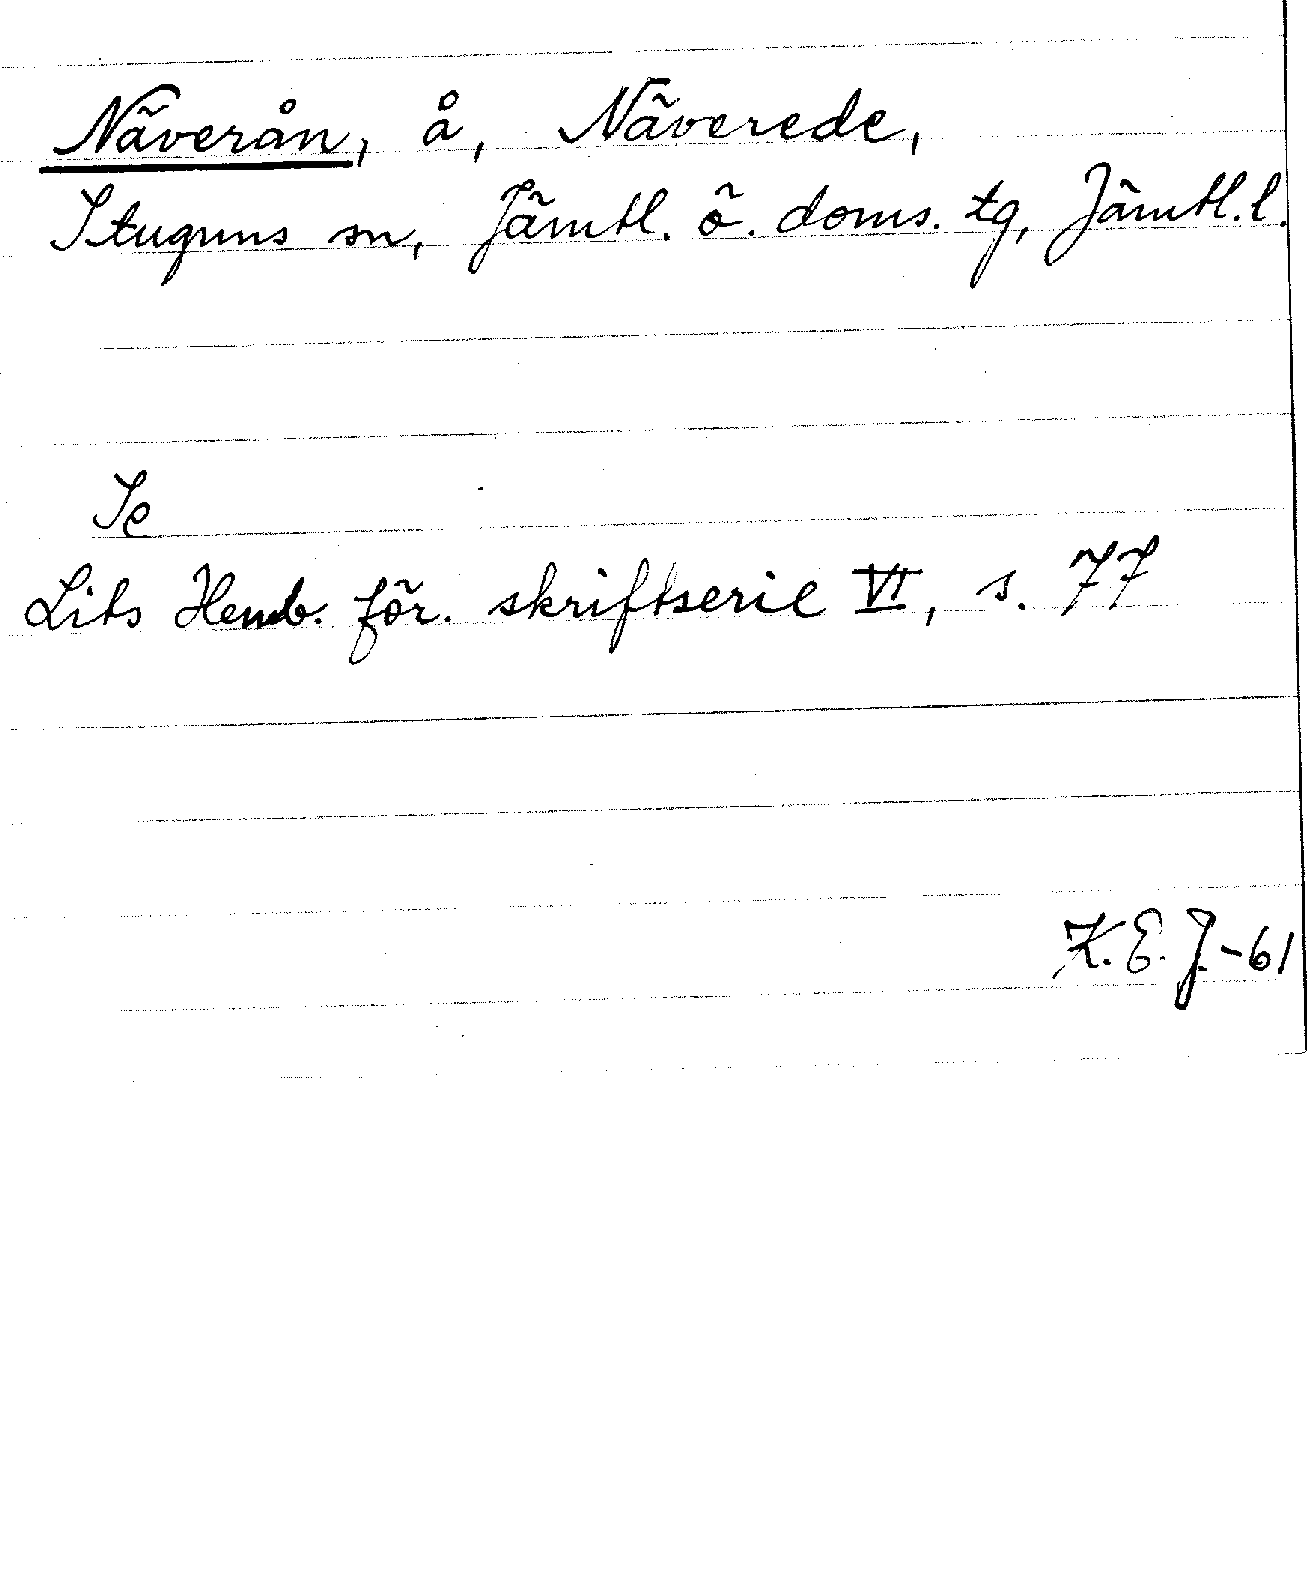 Näverån, å, Näverede,
Stuguns sn, Jämtl. ö. doms. tg, Jämtl. l.
Se
Lits Hemb. för. skriftserie VI, s. 77
K. E. J. -61